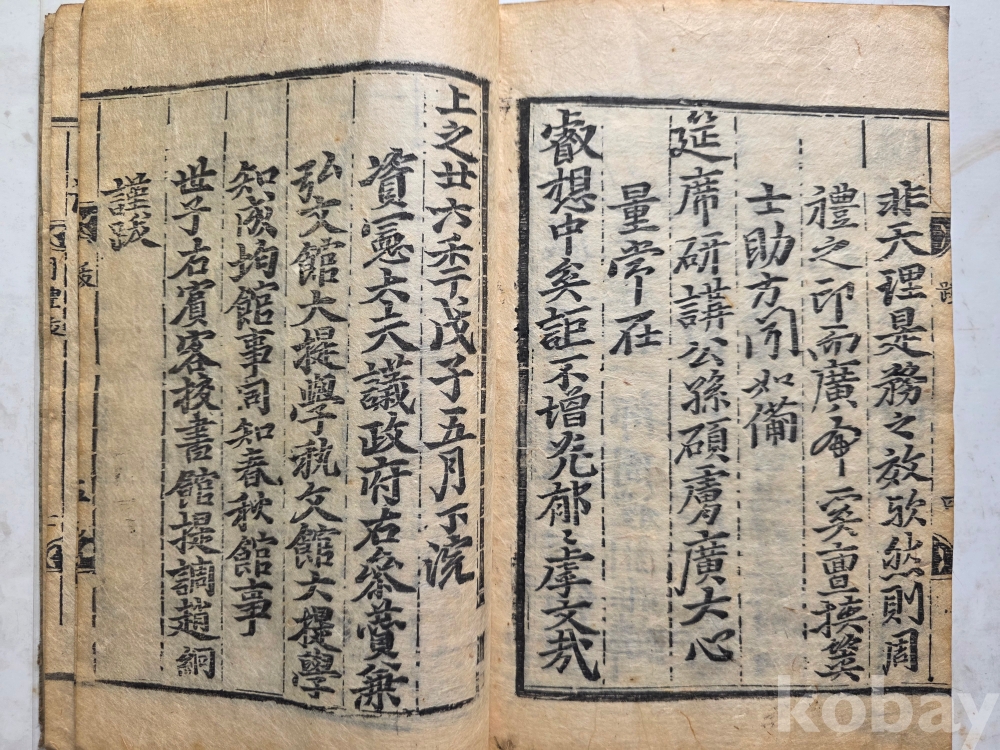 非天理是務之效歟然則周
禮之印而廣布奚亶撫箕
士助方閒如備
筵席研講公孫碩膚廣大心
量常在
睿想中奚詎不增光郁〻乎文哉
上之廿六年戊子五月下浣
資憲大夫議政府右參贊兼
弘文館大提學執文館大提學
知成均館事同知春秋館事
世子右賓客校書館提調趙絅
謹跋
跋
kobay